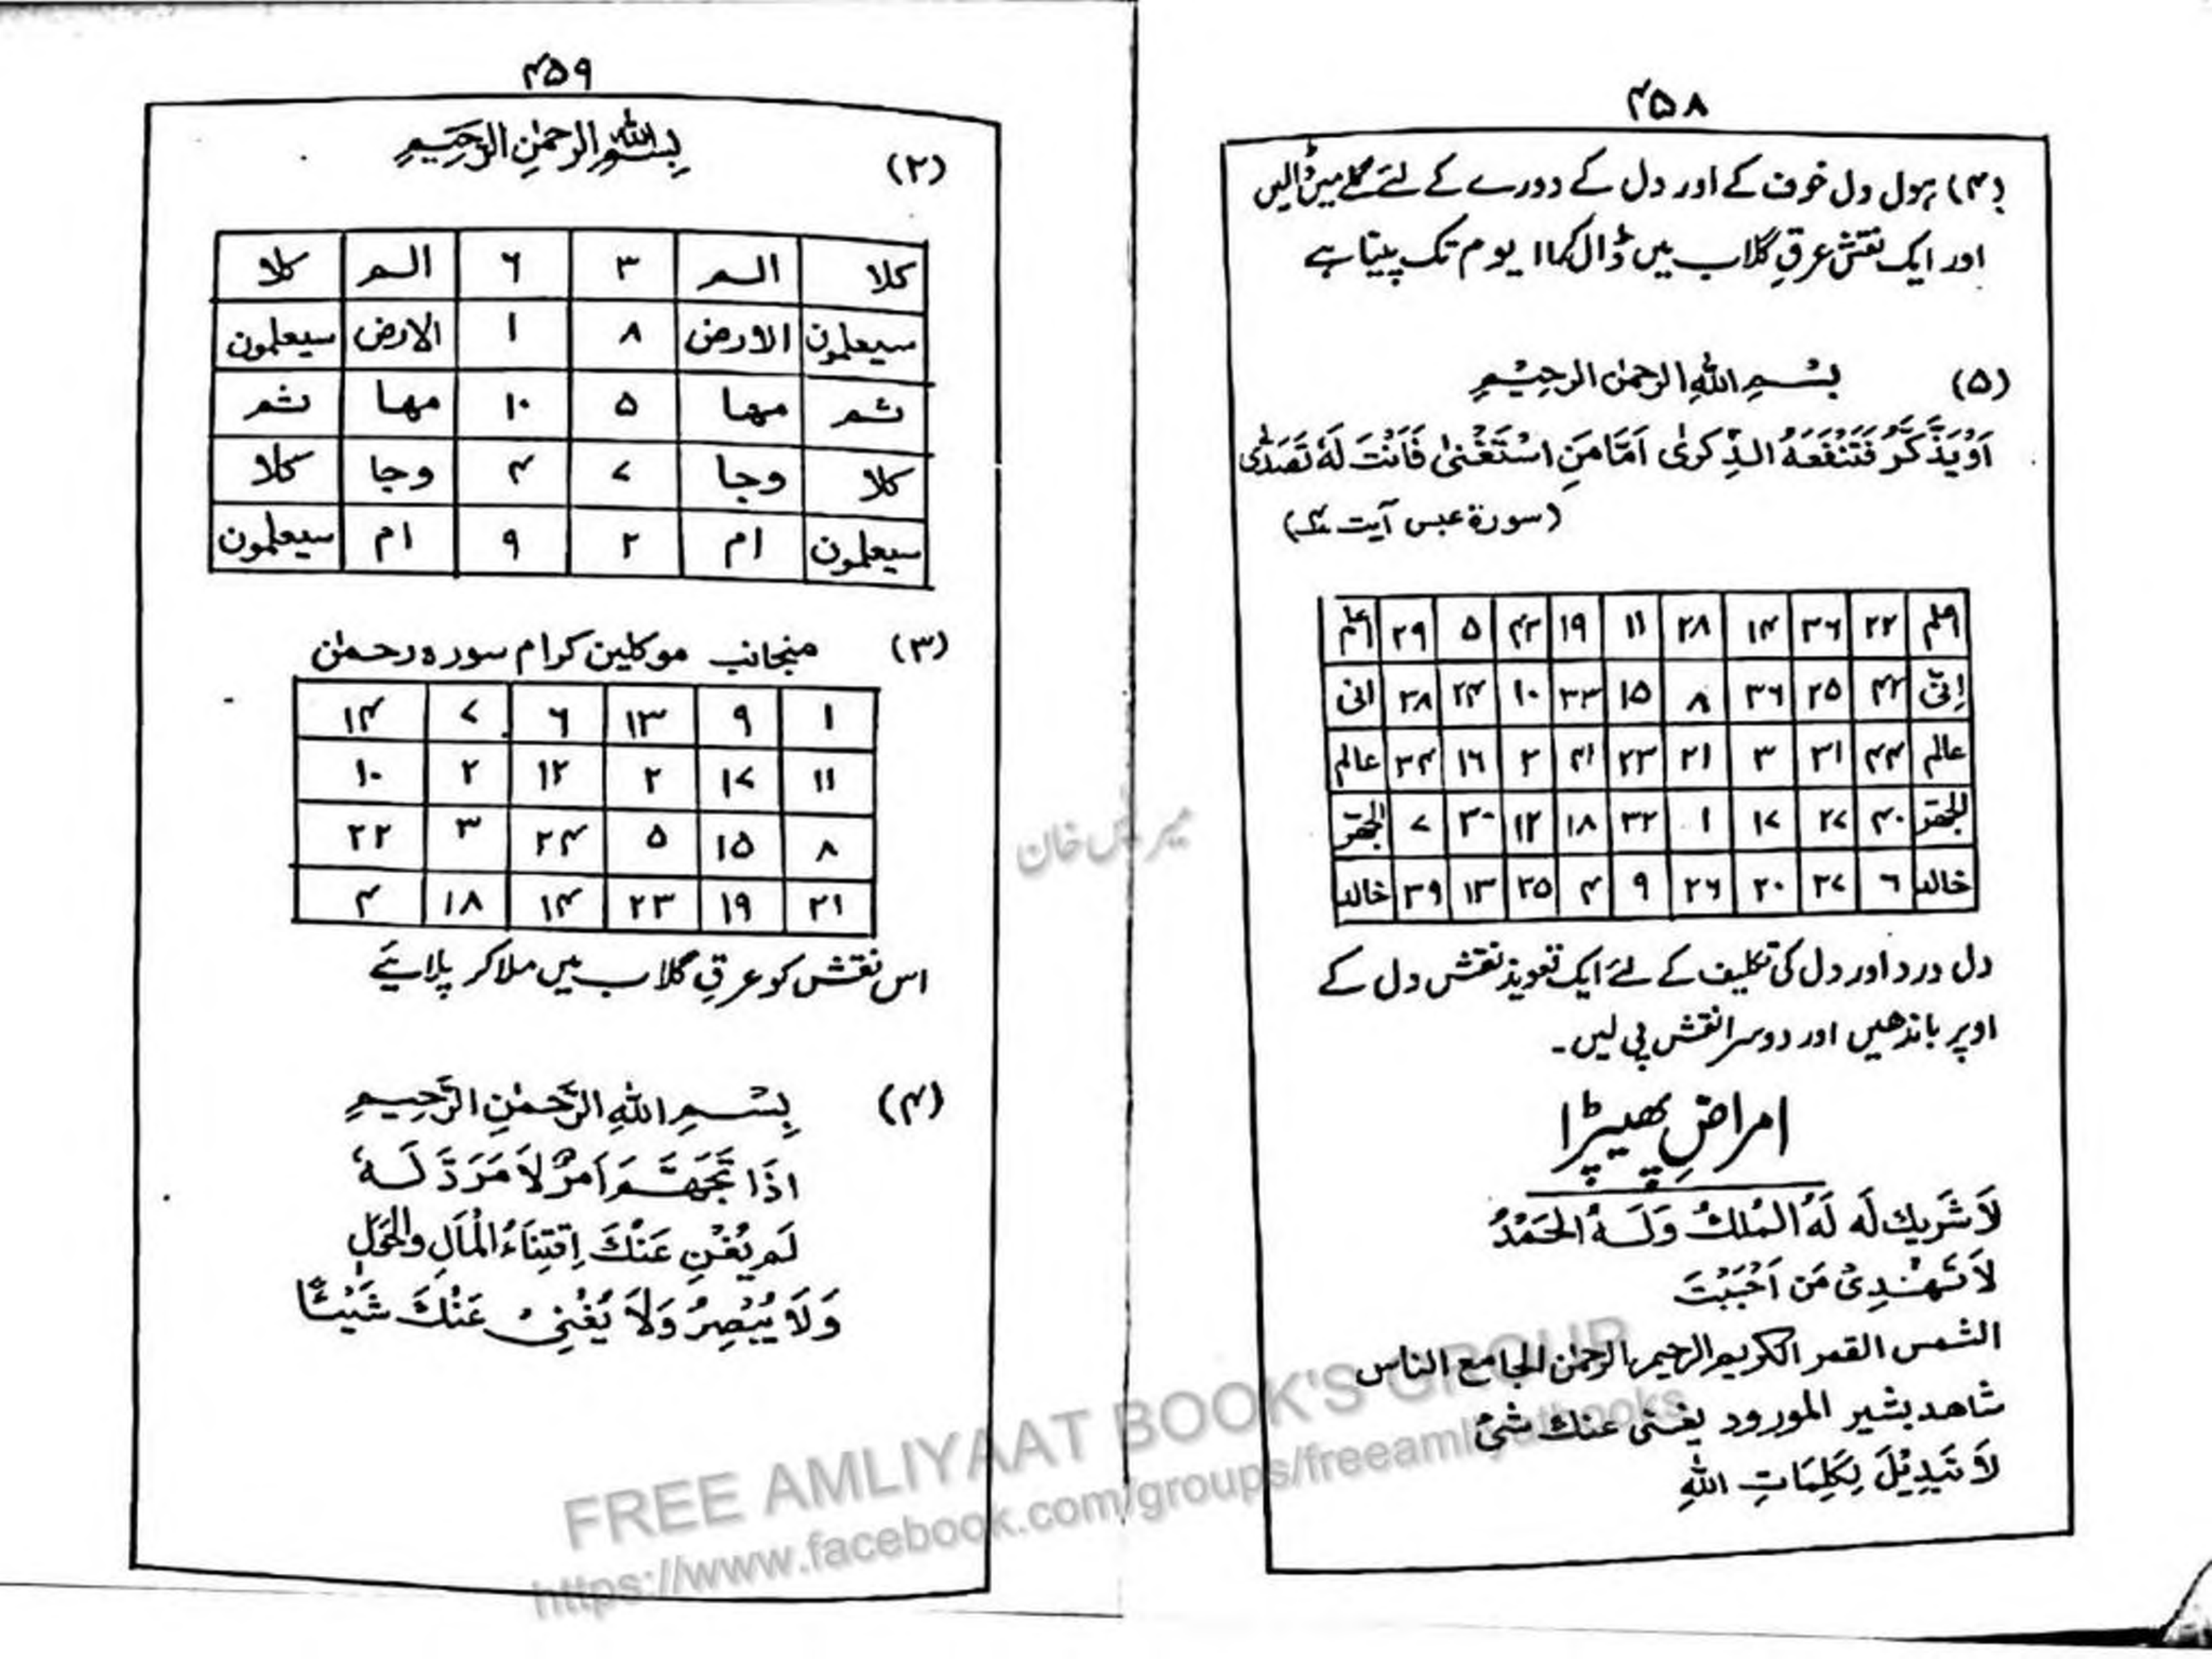 ۴۵۸
(۴) ہول دل خوف کے اور دل کے دورے کے لئے گلے میں ڈالیں
اور ایک نقش عرقِ گلاب میں ڈال کر ۱۱ یوم تک پینا ہے
(۵) بِسْمِ اللهِ الرحمٰن الرحِیْمِ
اَوْ يَذَّكَّرُ فَتَنْفَعَهُ الذِّكرىٰ اَمَّا مَنِ اسْتَغْنىٰ فَاَنْتَ لَهٗ تَصَدّٰى
(سورة عبس آیت ۴)
۲۲ ۳۶ ۱۴ ۲۸ ۱۱ ۱۹ ۴۲ ۵ ۲۹
اِنّی ۴۲ ۲۵ ۳۶ ۸ ۱۵ ۳۳ ۱۰ ۲۴ ۳۸ انی
عالم ۴۴ ۳۱ ۳ ۲۱ ۲۳ ۴۱ ۲ ۱۶ ۳۴ عالم
۴۰ ۲۷ ۱۷ ۱ ۳۲ ۱۸ ۱۲ ۳۰ ۷
خالد ۶ ۳۷ ۲۰ ۲۶ ۹ ۴ ۳۵ ۱۳ ۳۹ خالد
دل درد اور دل کی تکلیف کے لئے ایک تعویذ نقش دل کے
اوپر باندھیں اور دوسرا نقش پی لیں۔
امراضِ پھیپڑا
لَا شَرِيكَ لَه لَهُ المُلكُ وَلَهُ الحَمْدُ
لَا تَهْدِىْ مَن اَحْبَبْتَ
الشمس القمر الكريم الرحيم الرحمٰن الجامع الناس
شاهد بشير المورود يغنى عنك شئ
لَا تَبدِيْلَ لِكَلِمَاتِ اللهِ
۴۵۹
(۲) بِسْمِ اللهِ الرحمٰنِ الرَّحِيمِ
کلا الم ۳ ۶ الم کلا
سیعلمون الارض ۸ ۱ الارض سیعلمون
ثم مھا ۵ ۱۰ مھا ثم
کلا وجا ۷ ۴ وجا کلا
سیعلمون ام ۲ ۹ ام سیعلمون
(۳) منجانب موکلین کرام سورہ رحمٰن
۱ ۹ ۱۳ ۶ ۷ ۱۴
۱۱ ۱۷ ۲ ۱۲ ۲ ۱۰
۸ ۱۵ ۵ ۲۴ ۳ ۲۲
۲۱ ۱۹ ۲۳ ۱۴ ۱۸ ۴
اس نقش کو عرقِ گلاب میں ملا کر پلائیے
(۴) بِسْمِ اللهِ الرَّحْمٰنِ الرَّحِيمِ
اذَا تَجَهَّمَ اَمرٌ لَا مَرَدَّ لَهٗ
لَم يُغْنِ عَنْكَ اِقتِنَاءُ الْمَالِ
وَلَا يُبْصِرُ وَلَا يُغْنِىْ عَنْكَ شَيْئًا
میر خان
FREE AMLIYAAT BOOK'S GROUP
https://www.facebook.com/groups/freeamliyaatbooks